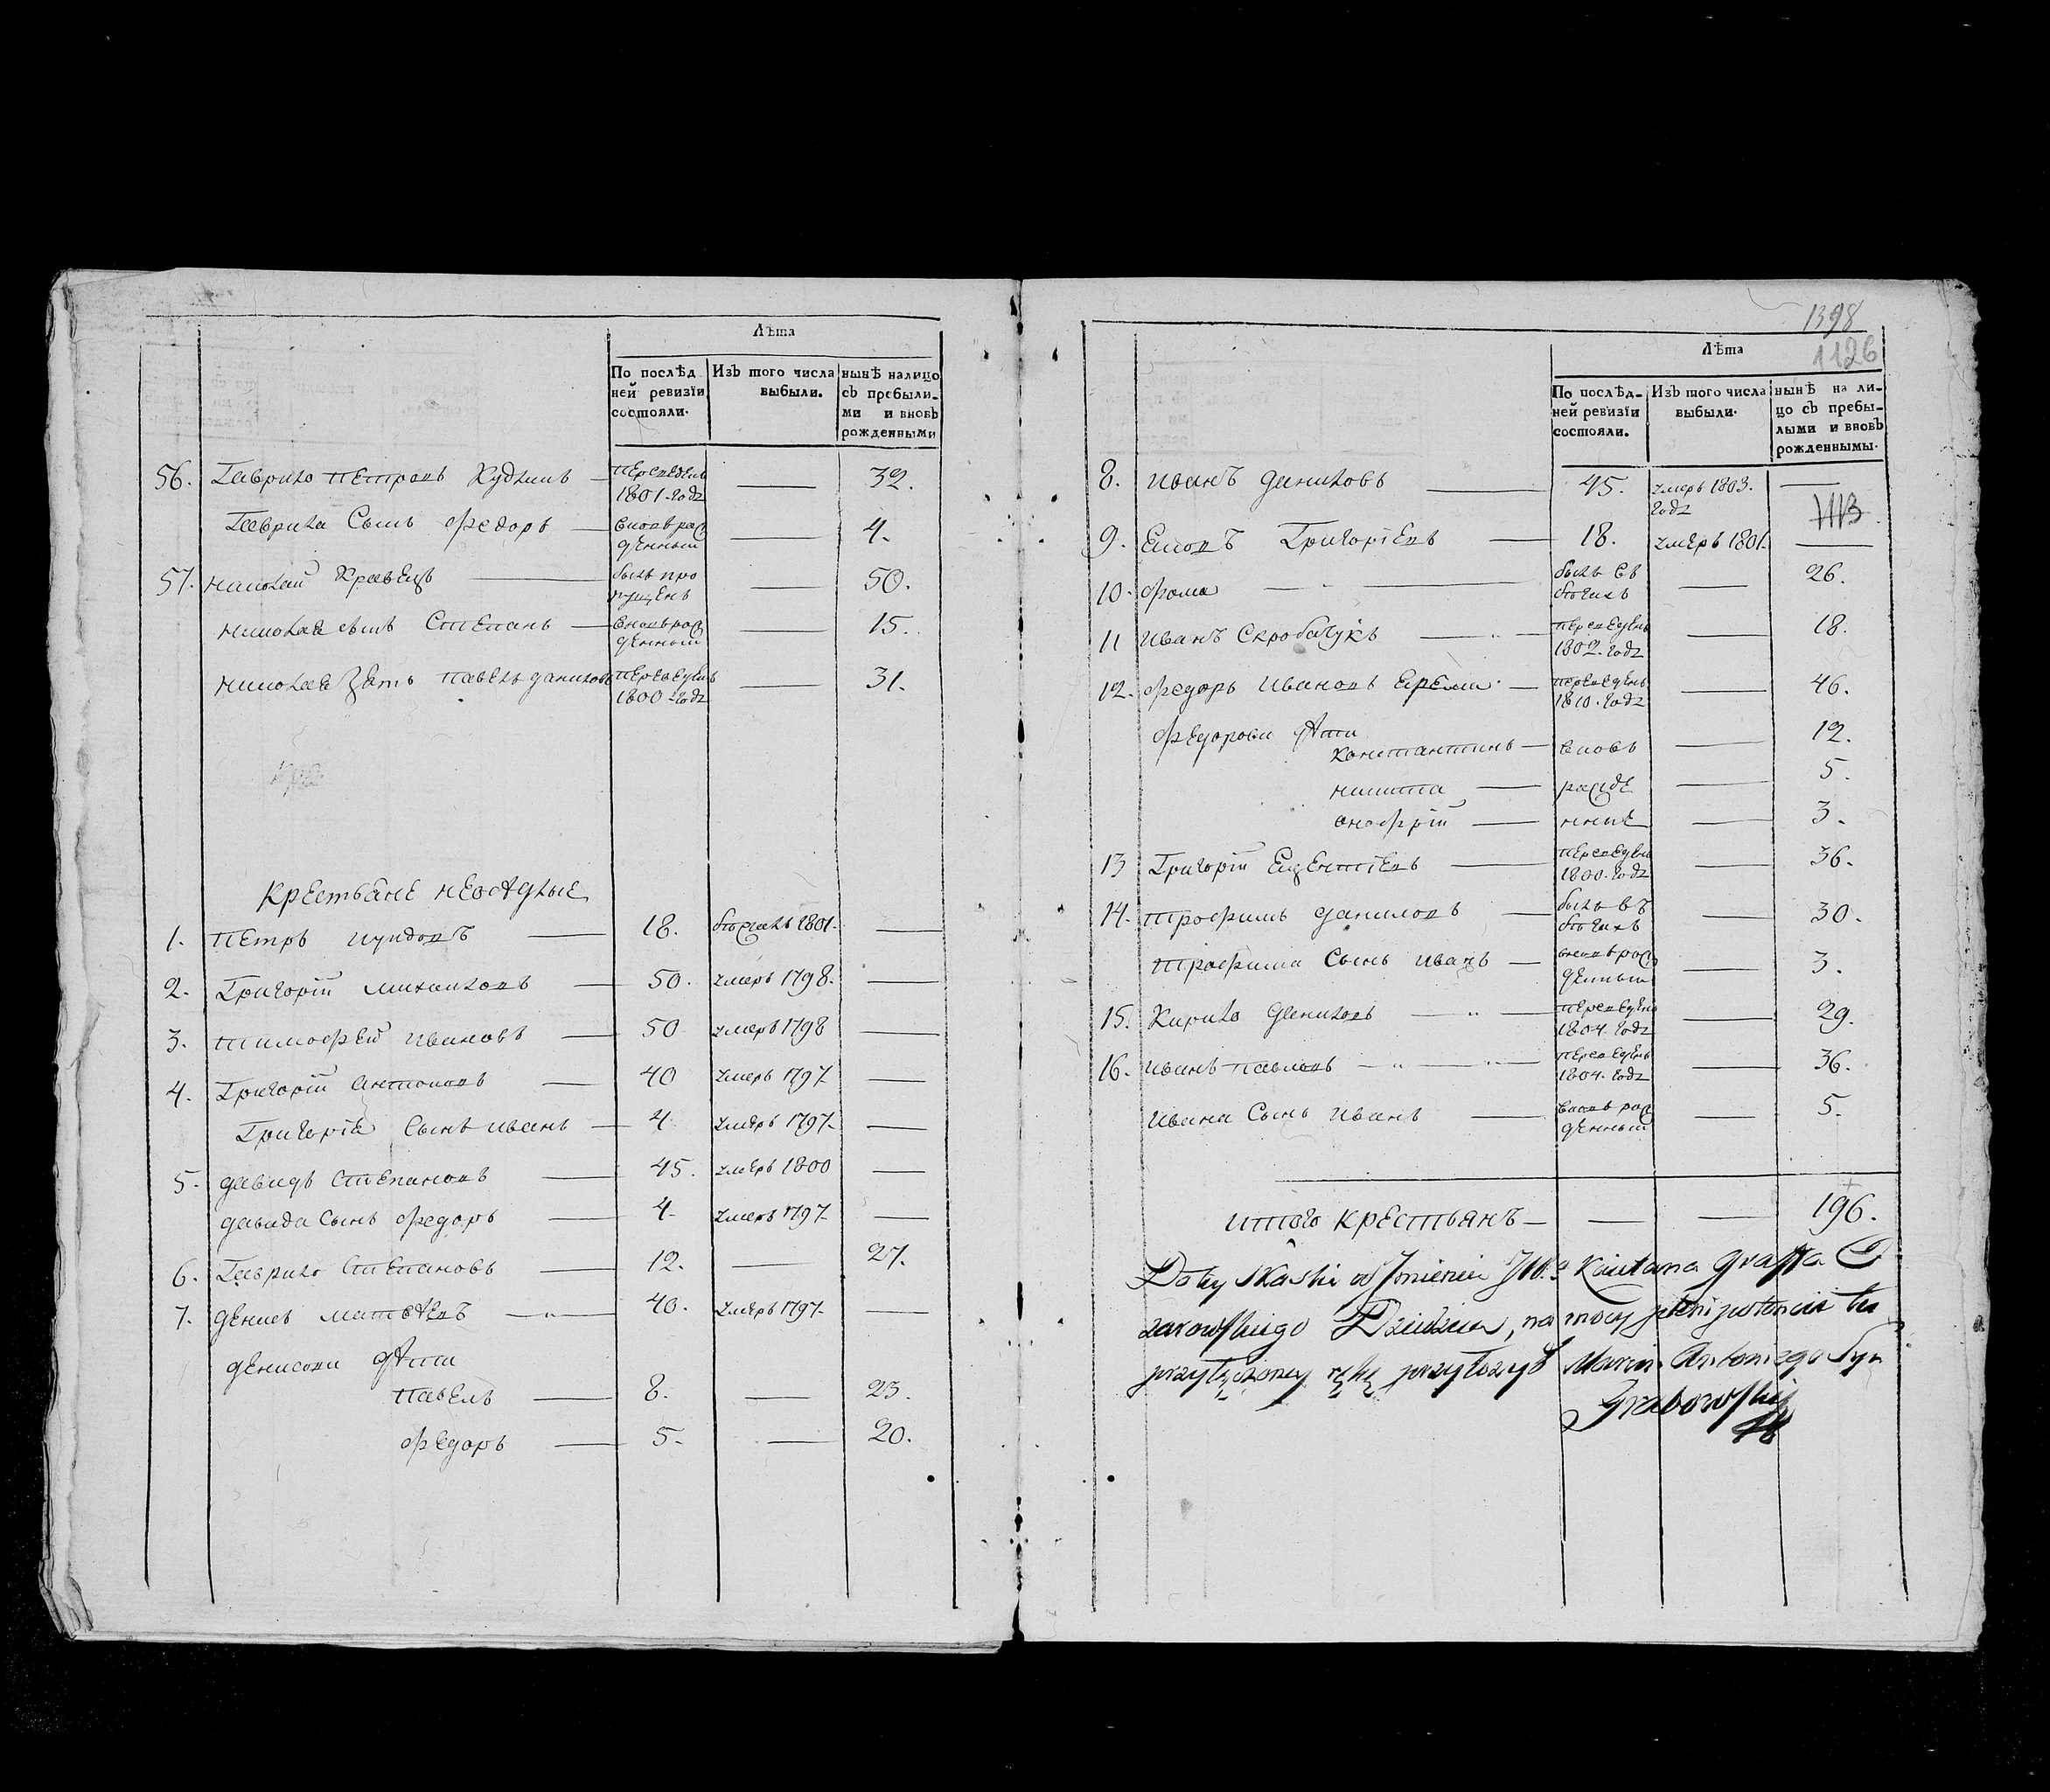 Лѣта
По послѣд
ней ревизіи
состояли.
Изъ того числа
выбыли.
нынѣ налицо
съ пребыли-
ми и вновь
рожденными
56. Гаврило Петровъ — переведенъ 1801. года — 32.
Гаврила Сынъ Федоръ — вновь рож денный — 4.
57. Николай Кравецъ — былъ про пущенъ — 50.
Николая сынъ Степанъ — вновь рож денный — 15.
Николая Зять Павелъ Даниловъ переведенъ 1800 года — 31.
Крестьяне неосѣдлые
1. Петръ — 18. 1801. —
2. Григорій Михайловъ — 50. умеръ 1798. —
3. Тимофей Ивановъ — 50 умеръ 1798 —
4. Григорій Антоновъ — 40 умеръ 1797 —
Григорія Сынъ Иванъ — 4 умеръ 1797. —
5. Давидъ Степановъ — 45. умеръ 1800 —
Давида Сынъ Федоръ — 4. умеръ 1797 —
6. Гаврило Степановъ — 12. — 27.
7. Денисъ Матвѣевъ — 40. умеръ 1797. —
Денисови дѣти
Павелъ — 8. — 23.
Федоръ — 5. — 20.
1398
1126
Лѣта
По послѣд-
ней ревизіи
состояли.
Изъ того числа
выбыли.
нынѣ на ли-
цо съ пребы-
лыми и вновь
рожденнымы.
8. Иванъ Даниловъ — 45. умеръ 1803. года —
9. Григоріевъ — 18. умеръ 1801. —
10. Фома — былъ въ бѣгахъ — 26.
11 Иванъ Скробачукъ — переведенъ 1802. года — 18.
12. Федоръ Ивановъ — переведенъ 1810. года — 46.
Федорови дѣти
Константинъ — вновь — 12.
Никита — рожде — 5.
Онофрій — нные — 3.
13 Григорій — переведенъ 1800. года — 36.
14. Трофимъ Даниловъ — былъ въ бѣгахъ — 30.
Трофима Сынъ Иванъ — вновь рож денный — 3.
15. Кирило Даниловъ — переведенъ 1804. года — 29.
16. Иванъ Павловъ — переведенъ 1804. года — 36.
Ивана Сынъ Иванъ — вновь рож денный — 5.
Итого крестьянъ — — — 196.
Do tey Skaski w Jmieniu JW. Kaietana Graffa O
zarowskiego Dziedzica, na mocy plenipotencii tu
przyłączoney rękę przyłożył Marcin Antoniego Syn
Grabowski